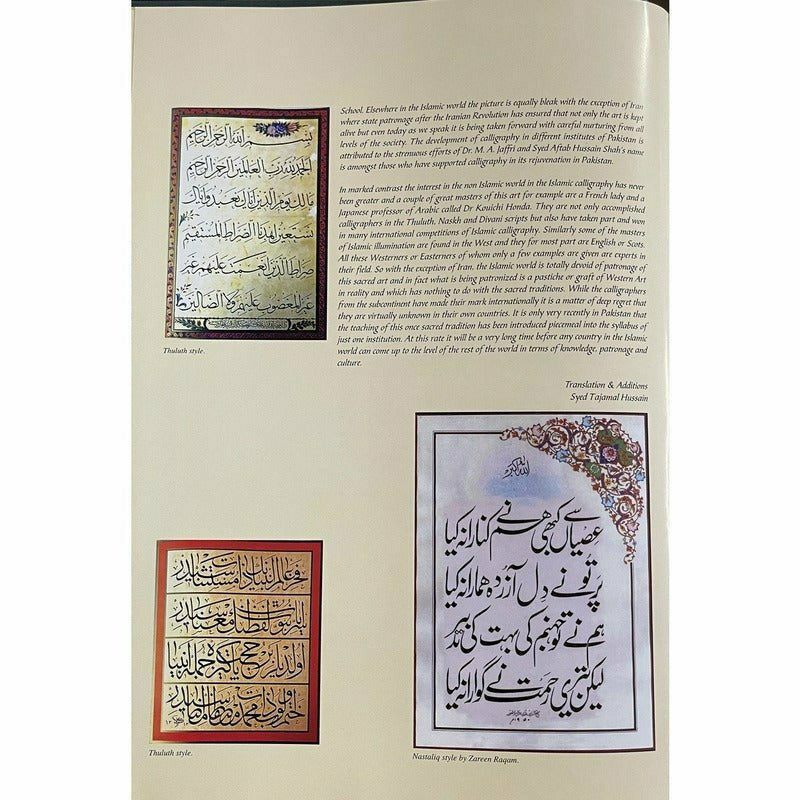 School. Elsewhere in the Islamic world the picture is equally bleak with the exception of Iran
where state patronage after the Iranian Revolution has ensured that not only the art is kept
alive but even today as we speak it is being taken forward with careful nurturing from all
levels of the society. The development of calligraphy in different institutes of Pakistan is
attributed to the strenuous efforts of Dr. M. A. Jaffri and Syed Aftab Hussain Shah's name
is amongst those who have supported calligraphy in its rejuvenation in Pakistan.
In marked contrast the interest in the non Islamic world in the Islamic calligraphy has never
been greater and a couple of great masters of this art for example are a French lady and a
Japanese professor of Arabic called Dr Kouichi Honda. They are not only accomplished
calligraphers in the Thuluth, Naskh and Divani scripts but also have taken part and won
in many international competitions of Islamic calligraphy. Similarly some of the masters
of Islamic illumination are found in the West and they for most part are English or Scots.
All these Westerners or Easterners of whom only a few examples are given are experts in
their field. So with the exception of Iran, the Islamic world is totally devoid of patronage of
this sacred art and in fact what is being patronized is a pastiche or graft of Western Art
in reality and which has nothing to do with the sacred traditions. While the calligraphers
from the subcontinent have made their mark internationally it is a matter of deep regret that
they are virtually unknown in their own countries. It is only very recently in Pakistan that
the teaching of this once sacred tradition has been introduced piecemeal into the syllabus of
just one institution. At this rate it will be a very long time before any country in the Islamic
world can come up to the level of the rest of the world in terms of knowledge, patronage and
culture.
Translation & Additions
Syed Tajamal Hussain
بسم الله الرحمن الرحيم
الحمد لله رب العالمين الرحمن الرحيم
مالك يوم الدين اياك نعبد واياك
نستعين اهدنا الصراط المستقيم
صراط الذين انعمت عليهم غير
المغضوب عليهم ولا الضالين
Thuluth style.
الله اکبر
عصیاں سے کبھی ہم نے کنارا نہ کیا
پر تو نے دل آزردہ ہمارا نہ کیا
ہم نے تو جہنم کی بہت کی تدبیر
لیکن تری رحمت نے گوارا نہ کیا
Nastaliq style by Zareen Raqam.
Thuluth style.